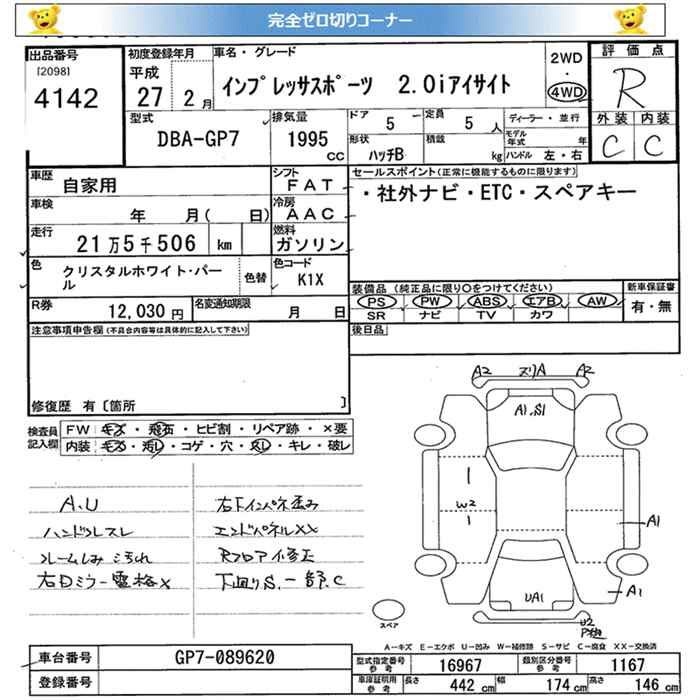 完全ゼロ切りコーナー
出品番号 初度登録年月 車名・グレード 2WD 評価点
[2098] 平成 インプレッサスポーツ 2.0iアイサイト ・ R
4142 27 2月 4WD
型式 排気量 ドア 5 ー 定員 5 人 ディーラー・並行 外装 内装
DBA-GP7 1995 cc 形状 ハッチB 積載 kg モデル年式 年 C C
ハンドル 左・右
車歴 自家用 シフト FAT セールスポイント(正常に機能するものに限ります)
車検 年 月( 日) 冷房 AAC ・社外ナビ・ETC・スペアキー
走行 21万5千506 km 燃料 ガソリン
色 クリスタルホワイト・パール 色替 色コード K1X
装備品(純正品に限り○をつけてください) 新車保証書
PS PW ABS エアB AW 有・無
SR ナビ TV カワ
R券 12,030円 名変通知期限 月 日
注意事項申告欄(不具合内容等は具体的に記入して下さい) 後日品
修復歴 有[箇所 ]
検査員記入欄 FW キズ・飛石・ヒビ割・リペア跡・×要
内装 キズ・汚レ・コゲ・穴・戻し・キレ・破レ
A2 ヌリA A2
A1.S1
W2
A1
A1
UA1
U2
スペア
A.U 右下インパネ歪み
ハンドルスレ エンドパネルXX
ルームしみ汚れ Rフロア修正
右Dミラー電格× 下廻りS.一部C
A-キズ E-エクボ U-凹み W-補修跡 S-サビ C-腐食 XX-交換済
車台番号 GP7-089620 型式指定番号参考 16967 類別区分番号参考 1167
登録番号 車庫証明用参考 長さ 442 cm 幅 174 cm 高さ 146 cm